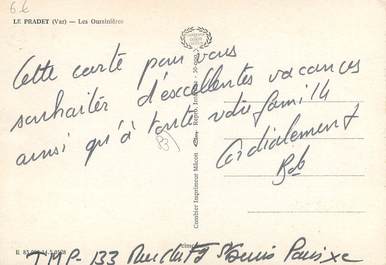 6 €
LE PRADET (Var) — Les Oursinières
Cette carte pour vous
souhaiter d'excellentes vacances
ainsi qu'à toute votre famille
Cordialement
Bob
83
Combier Imprimeur Mâcon
133 Rue St Denis Paris